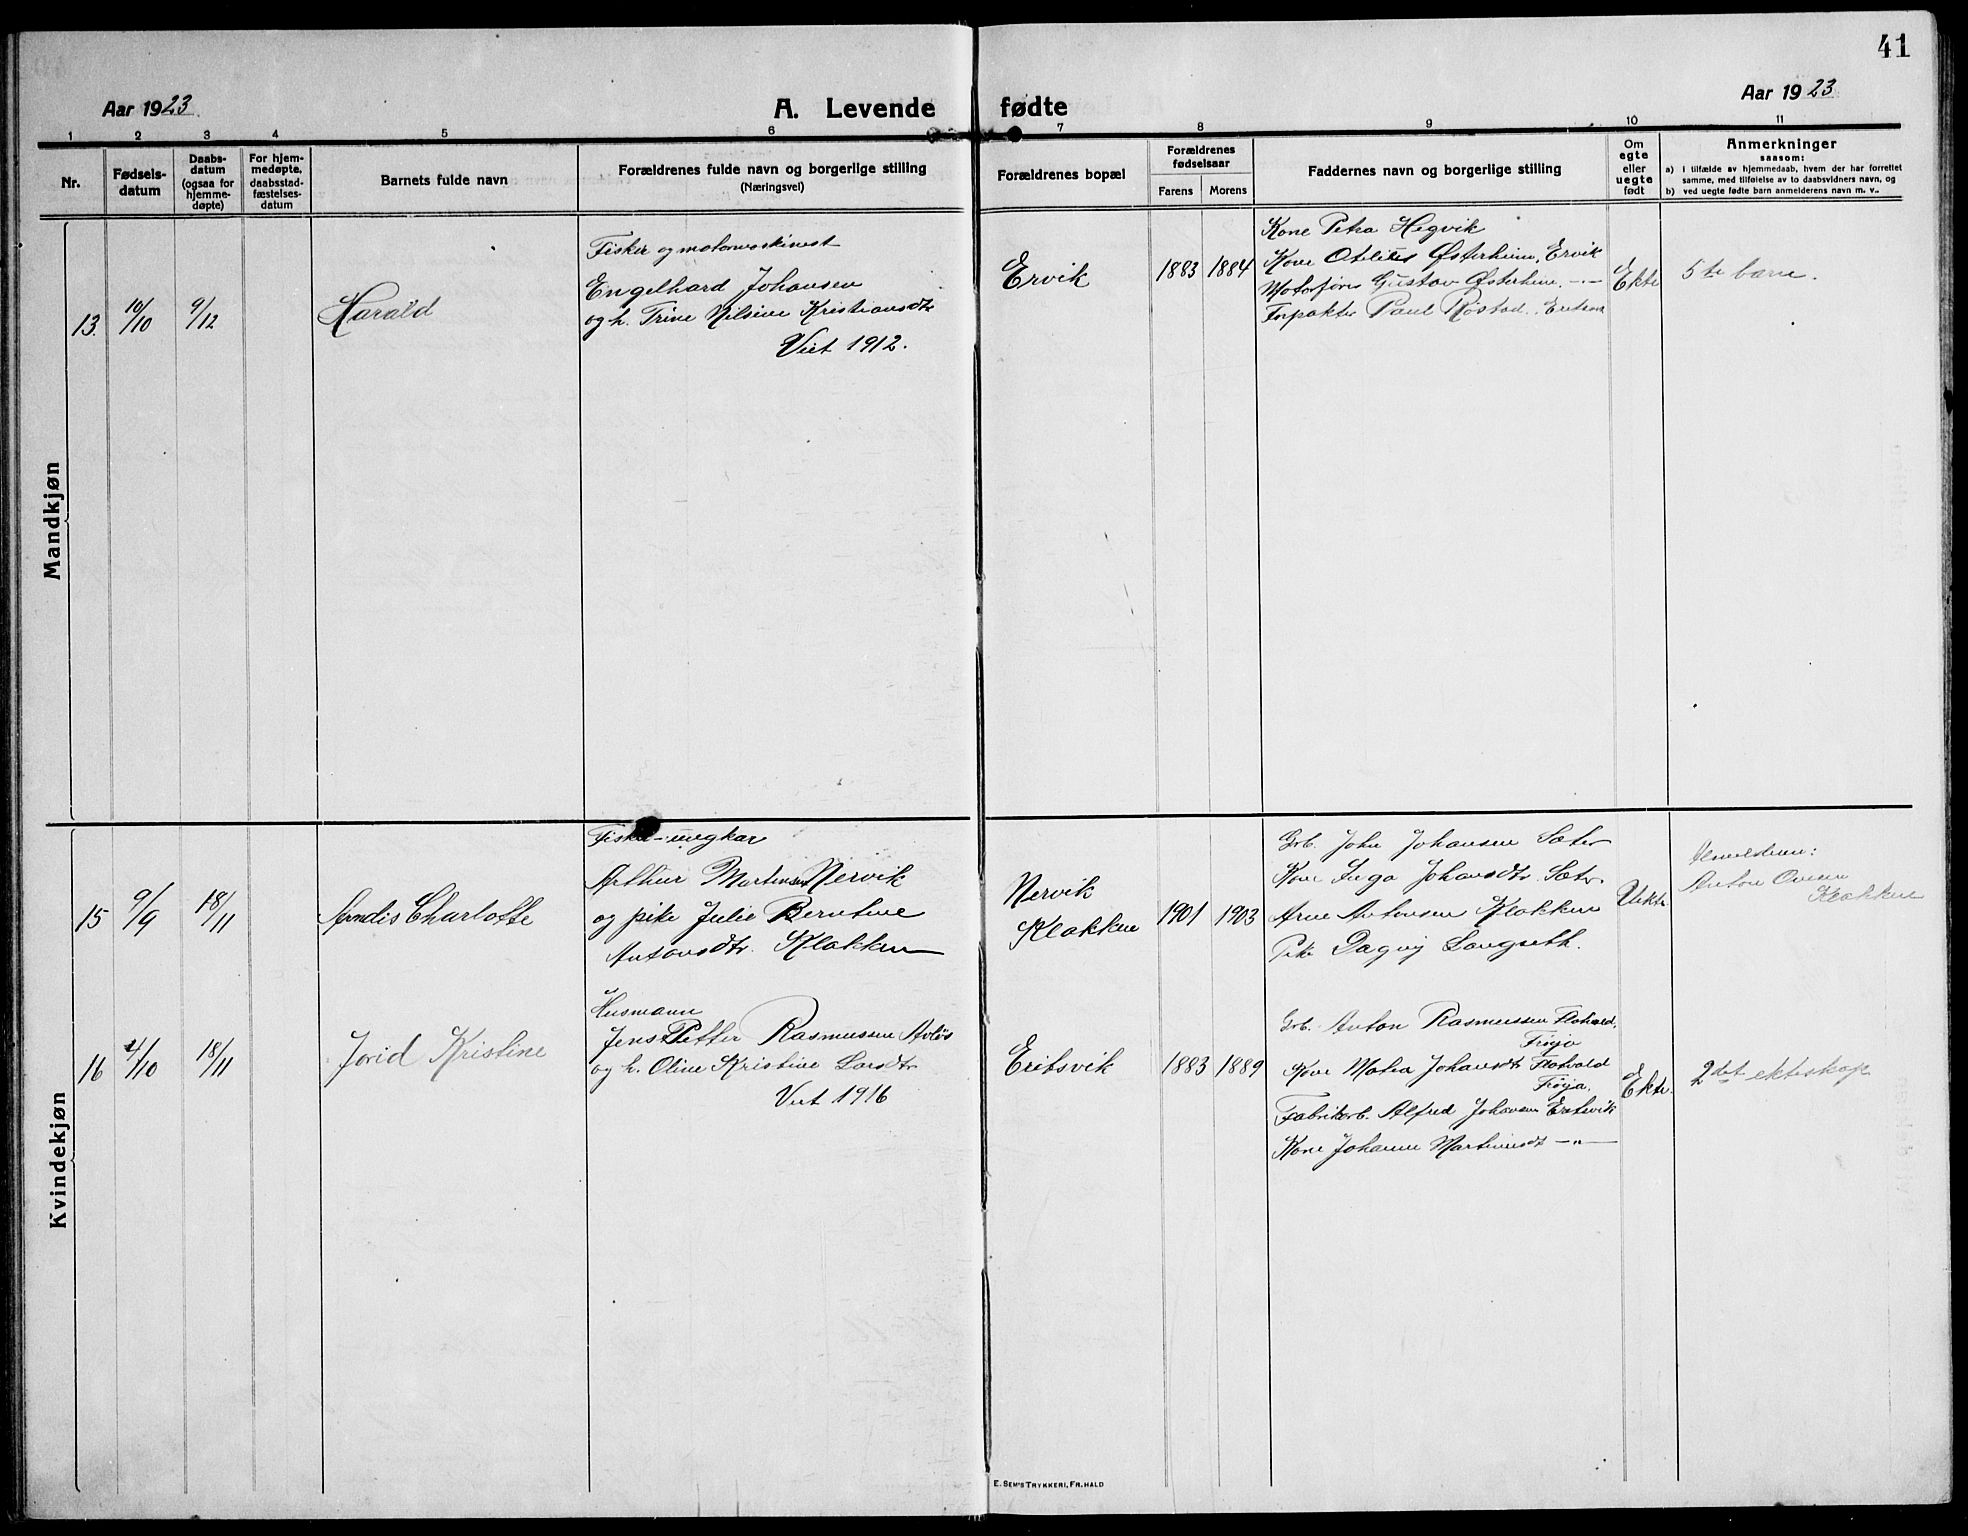 41
Aar 1923
A. Levende fødte
Aar 1923
1 2 3 4 5 6 7 8 9 10 11
Nr.
Fødsels-
datum
Daabs-
datum
(ogsaa for
hjemme-
døpte)
For hjem-
medøpte,
daabsstad-
fæstelses-
datum
Barnets fulde navn
Forældrenes fulde navn og borgerlige stilling
(Næringsvei)
Forældrenes bopæl
Forældrenes
fødselsaar
Farens Morens
Faddernes navn og borgerlige stilling
Om
egte
eller
uegte
født
Anmerkninger
saasom:
a) i tilfælde av hjemmedaab, hvem der har forrettet
samme, med tilføielse av to daabsvidners navn, og
b) ved uegte fødte barn anmelderens navn m. v..
Mandkjøn
13. 10/10 9/12
Harald
Fisker og motormaskinest
Engelhard Johansen
og h. Trine Nilsine Kristiansdtr
Viet 1912.
Ervik
1883 1884
Kone Petra Hegvik
Kone Østerheim, Ervik
Gustav Østerheim. -"-
Forpakter Paul Røstad.
Ekte
5te barn.
Kvindekjøn
15 9/9 18/11
Arndis Charlotte
Fisker-ungkar
Arthur Martinsen Nervik
og pike Julie Berntine
Antonsdtr. Klakken
Nervik
Klakken
1901 1903
Grb. John Johansen Sæter
Kone Inga Johansdtr Sæter.
Arne Antonsen Klakken
Pike Dagny Langseth.
Uekte
Anmelderen:
Anton Olsen
Klakken
16 4/10 18/11
Jorid Kristine
Husmann
Jens Petter Rasmussen
og h. Oline Kristine Larsdtr
Viet 1916
Eritsvik
1883 1889
Grb. Anton Rasmussen
Frøya
Kone Johansdtr
Frøya.
Fabrikarb. Alfred Johansen
Kone Johanne -"-
Ekte.
2det ekteskap
E. SEM'S TRYKKERI, FR.HALD